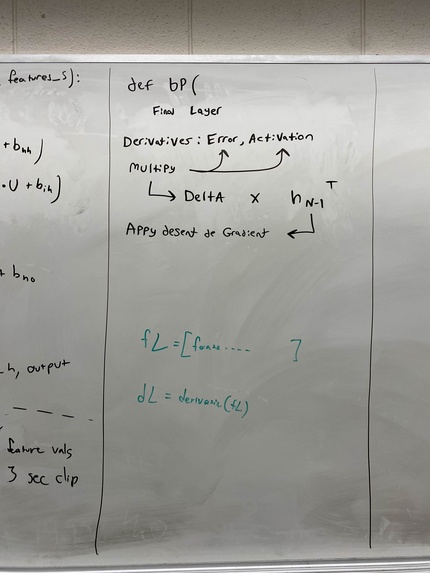 features_s):
+ b_hh)
. U + b_ih]
+ b_no
_h, output
feature vals
3 sec clip
def bP(
Final Layer
Derivatives : Error, Activation
Multipy
DeltA x h_N-1^T
Appy desent de Gradient
fL = [ ]
dL = (fL)